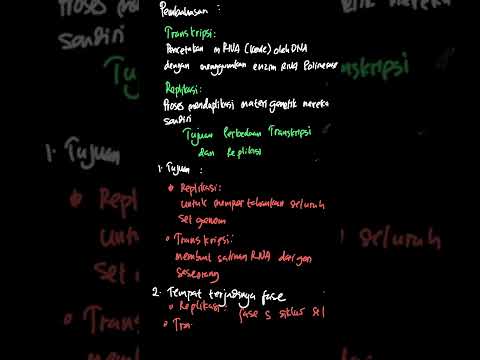 Pembahasan :
Transkripsi :
Pencetakan mRNA (kode) oleh DNA
dengan menggunakan enzim RNA Polimerase
Replikasi :
Proses menduplikasi materi genetik mereka
sendiri
Tujuh Perbedaan Transkripsi
dan Replikasi
1. Tujuan :
Replikasi :
untuk mempertahankan seluruh
set genom
Transkripsi :
membuat salinan RNA dari gen
seseorang
2. Tempat terjadinya fase
Replikasi : fase S siklus sel
Tra